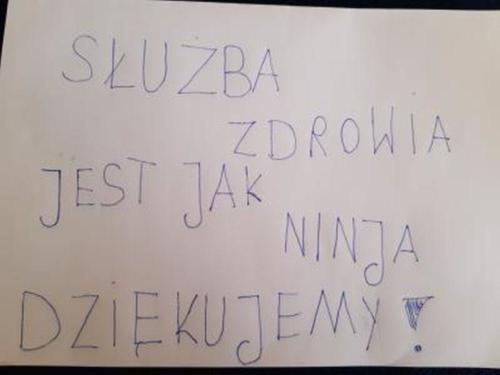 SŁUŻBA
ZDROWIA
JEST JAK
NINJA
DZIĘKUJEMY!